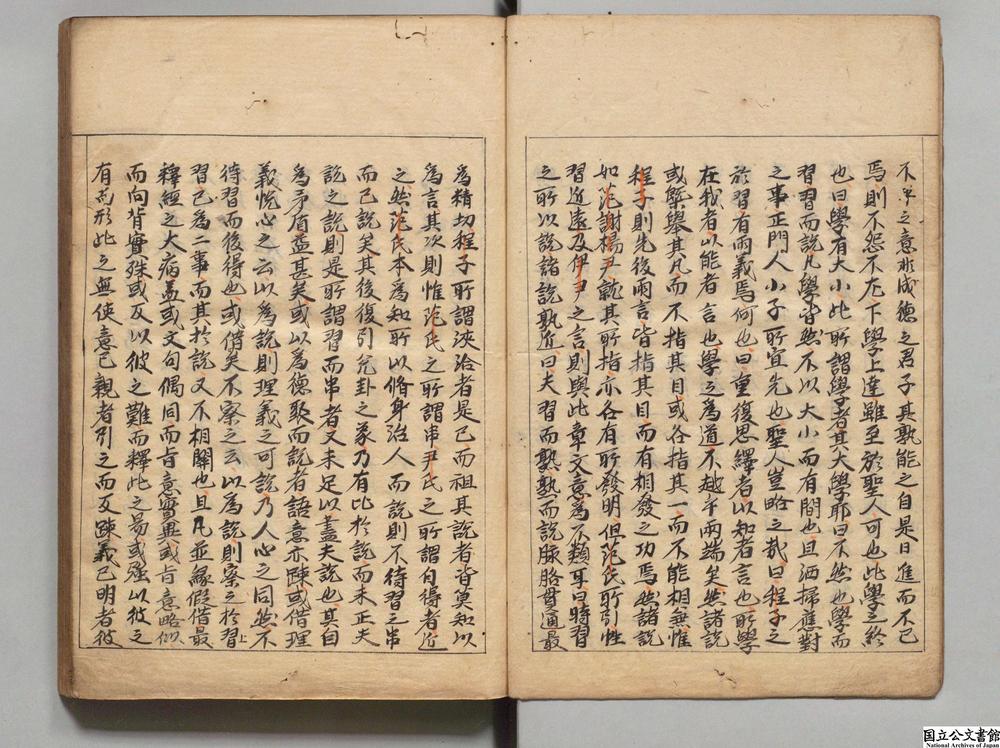 不平之意形成德之君子其孰能之自是日進而不已
焉則不怨不尤下學上達雖至於聖人可也此學之終
也曰學有大小此所謂學者其大學耶曰不然也學而
習習而說凡學皆然不以大小而有間也且洒掃應對
之事正門人小子所宜先也聖人豈略之哉曰程子之
於習有兩義焉何也曰重復思繹者以知者言也所學
在我者以能者言也學之為道不越乎兩端矣然諸說
或槩舉其凡而不指其目或各指其一而不能相兼惟
程子則先後兩言皆指其目而有相發之功焉然諸說
如范謝楊尹就其所指亦各有所發明但范氏所引性
習近遠及伊尹之言則與此章文意為不類耳曰時習
之所以說諸說孰近曰夫習而熟熟而說脉胳貫通最
為精切程子所謂浹洽者是已而祖其說者皆莫知以
為言其次則惟范氏之所謂串尹氏之所謂自得者近
之然范氏本為知所以脩身治人而說則不待習之串
而已說矣其後後引兌卦之彖乃有比於說而未正夫
說之說則是所謂習而串者又未足以盡夫說也其自
為矛盾益甚矣或以為德聚而說者語意亦踈或借理
義悅心之云以為說則理義之可說乃人心之同然不
待習而後得也或借矣不察之云以為說則察之於習上
習已為二事而其於說又不相關也且凡並緣假借最
釋經之大病蓋或文句偶同而旨意實異或旨意略似
而向背實殊或反以彼之難而釋此之易或強以彼之
有而形此之無使意已親者引之而反踈義已明者彼
国立公文書館
National Archives of Japan